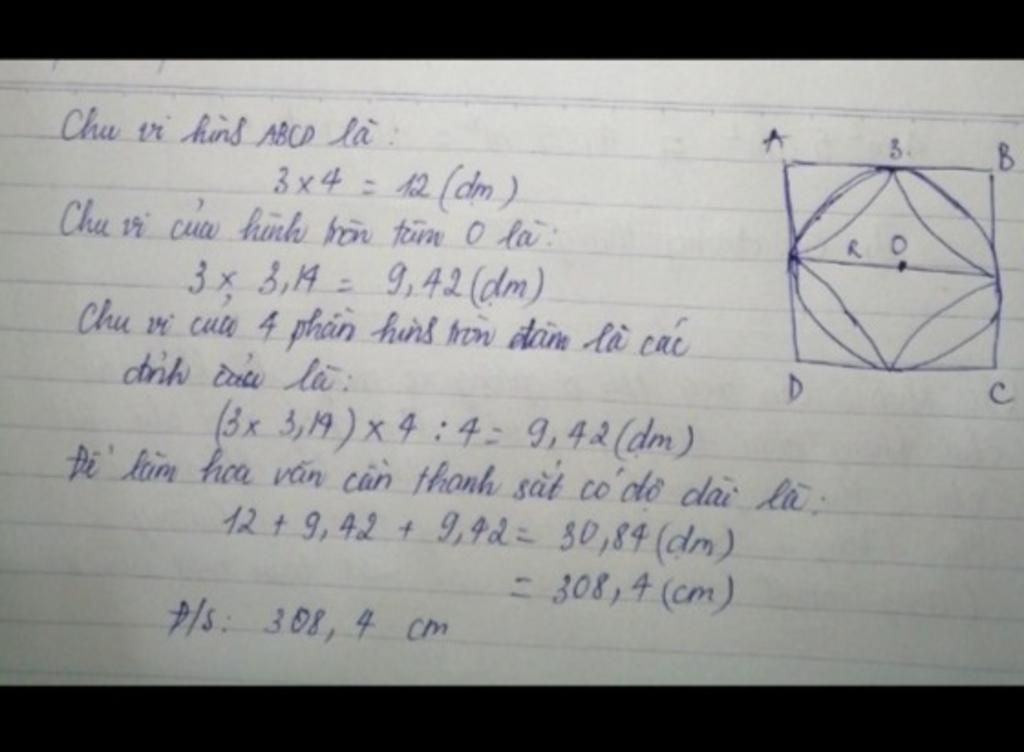 Chu vi hình ABCD là:
3 × 4 = 12 (dm)
Chu vi của hình tròn tâm O là:
3 × 3,14 = 9,42 (dm)
Chu vi của 4 phần hình tròn tâm là các
đỉnh của là:
(3 × 3,14) × 4 : 4 = 9,42 (dm)
Để làm hoa văn cần thanh sắt có độ dài là:
12 + 9,42 + 9,42 = 30,84 (dm)
= 308,4 (cm)
Đ/S: 308,4 cm
A 3. B
R O
D C